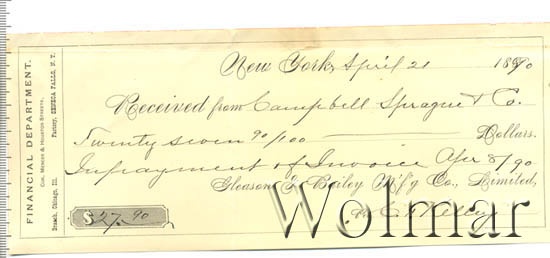 FINANCIAL DEPARTMENT.
Cor. Mercer & Houston Streets,
Branch, Chicago, Ill. Factory, SENECA FALLS, N. Y.
New York, April 21 1890
Received from Campbell Sprague & Co.
Twenty seven 90/100 Dollars.
In payment of Invoice Apr 8/90
Gleason & Bailey M'f'g Co., Limited,
$27.90
Kelley
Wolmar